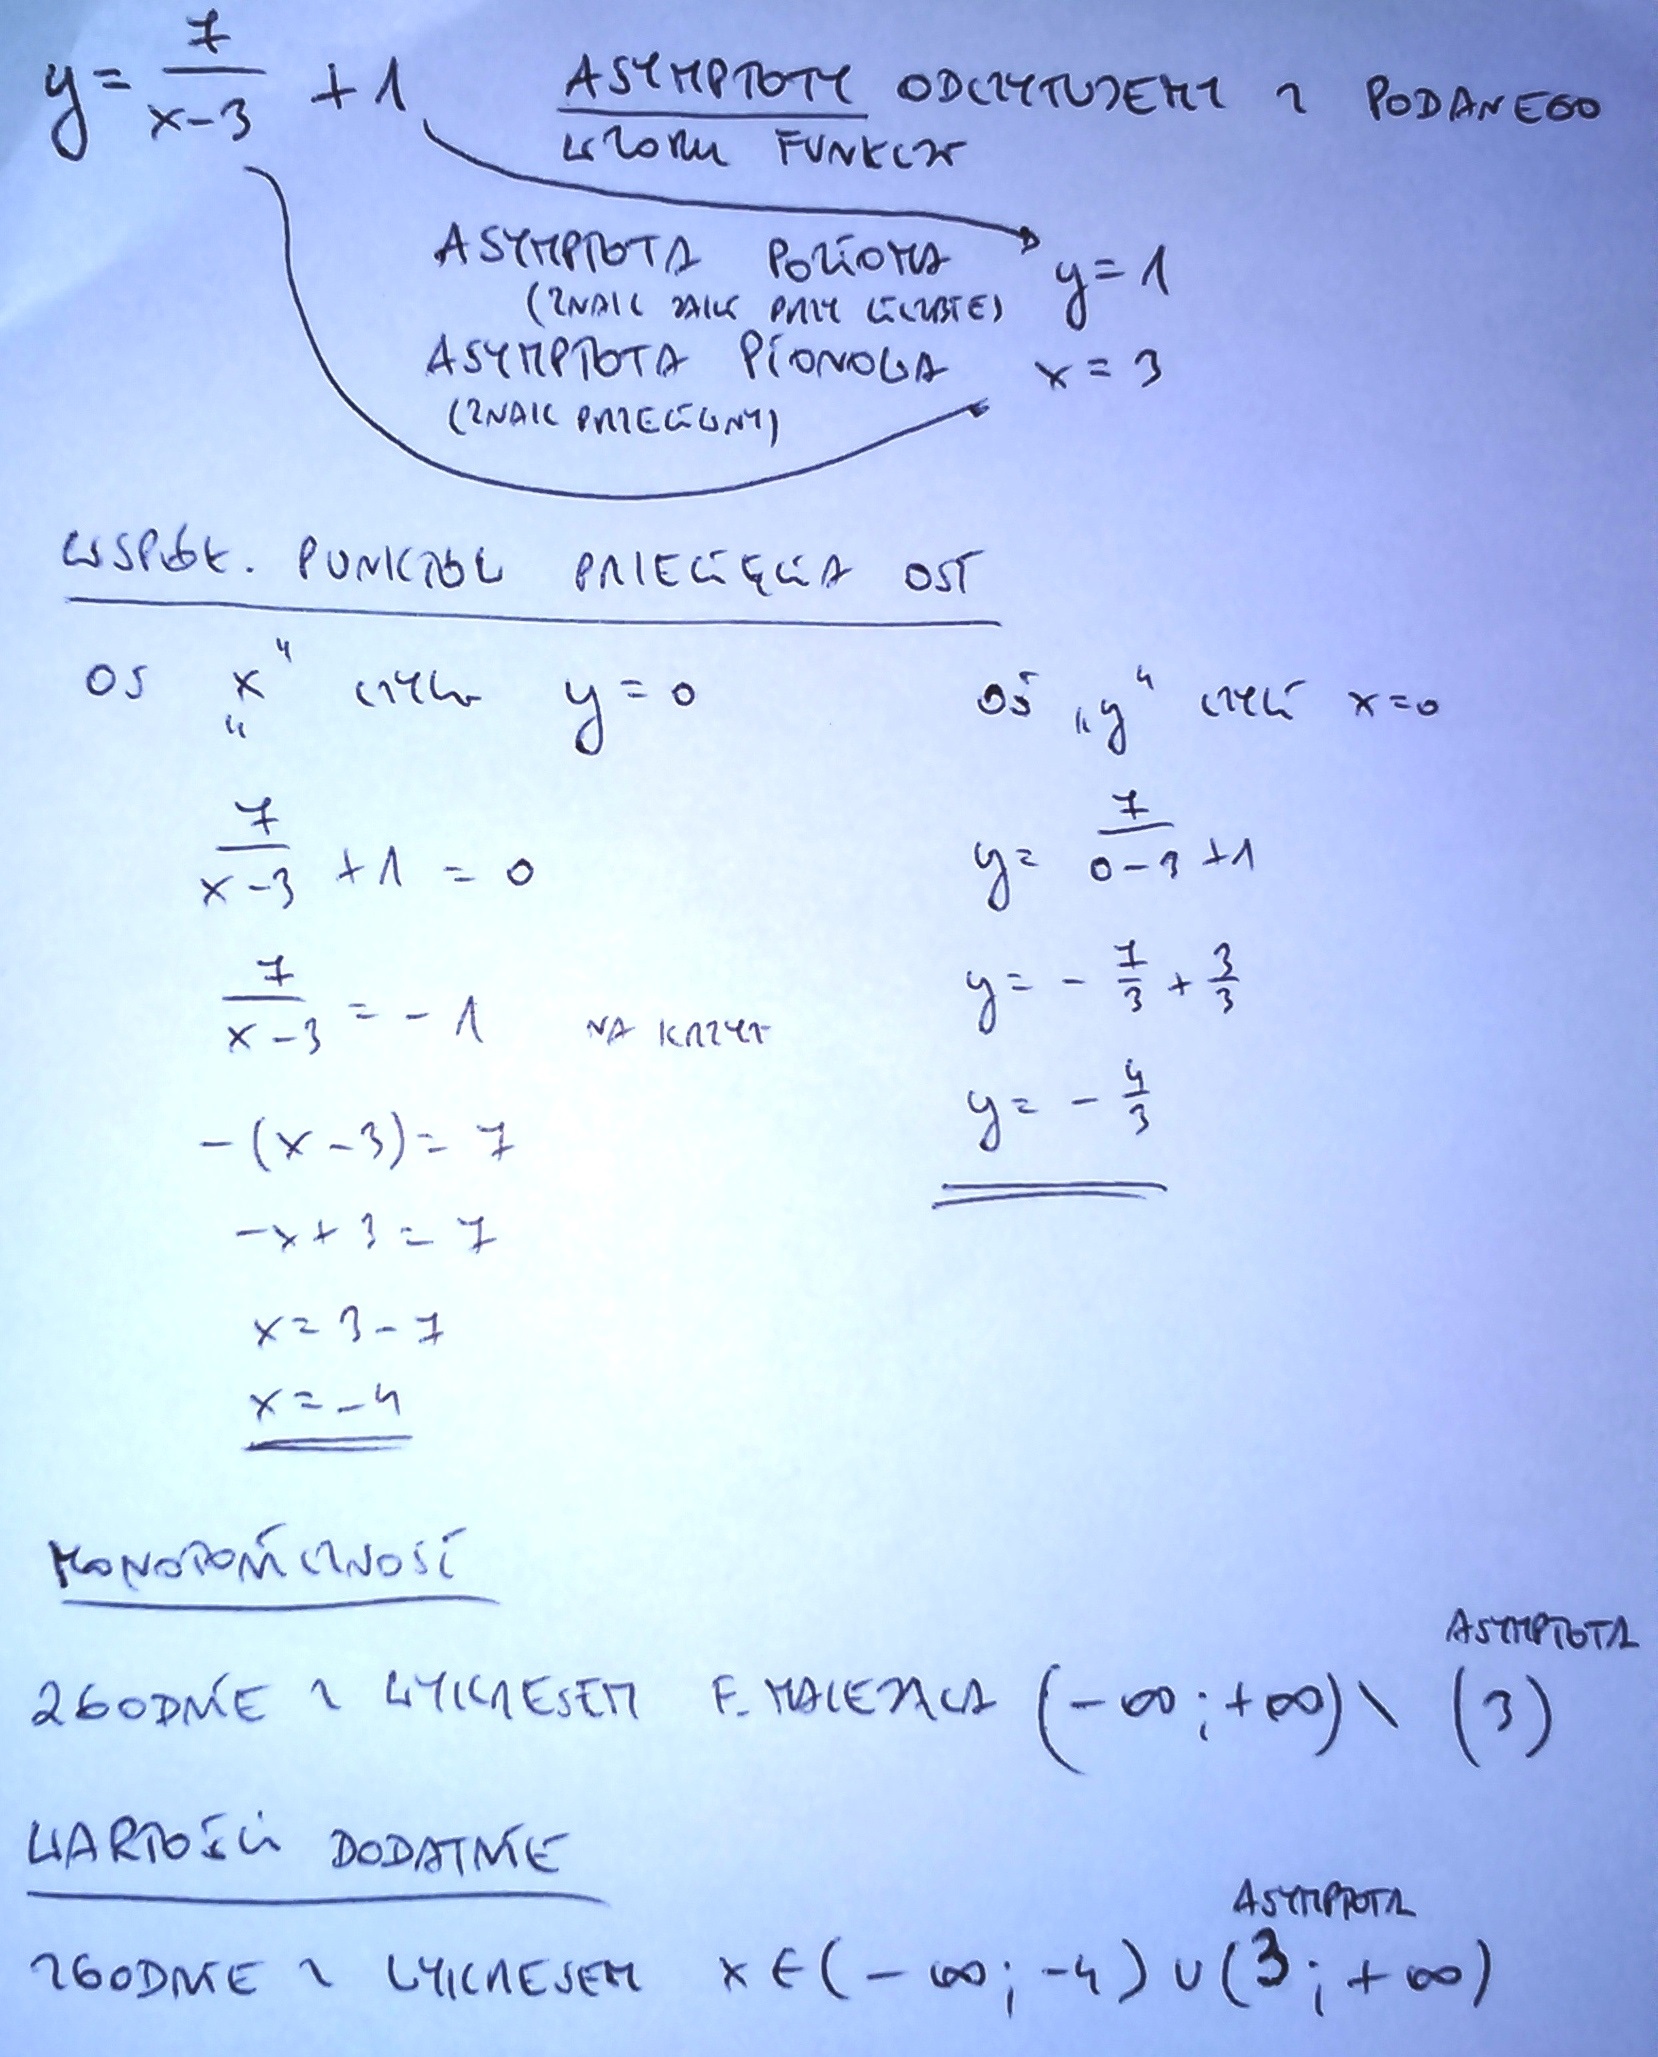 y = 7/(x-3) + 1
ASYMPTOTY ODCZYTUJEMY Z PODANEGO
WZORU FUNKCJI
ASYMPTOTA POZIOMA y = 1
(ZNAK JAK PRZY LICZBIE)
ASYMPTOTA PIONOWA x = 3
(ZNAK PRZECIWNY)
WSPÓŁ. PUNKTÓW PRZECIĘCIA OSI
OS „x" CZYLI y = 0
7/(x-3) + 1 = 0
7/(x-3) = -1 NA KRZYŻ
-(x-3) = 7
-x+3 = 7
x = 3-7
x = -4
OŚ „y" CZYLI x=0
y = 7/(0-3) +1
y = - 7/3 + 3/3
y = - 4/3
MONOTONICZNOŚĆ
ASYMPTOTA
ZGODNIE Z WYKRESEM F. MALEJĄCA (-∞; +∞) \ (3)
WARTOŚCI DODATNIE
ASYMPTOTA
ZGODNIE Z WYKRESEM x ∈ (-∞; -4) ∪ (3; +∞)